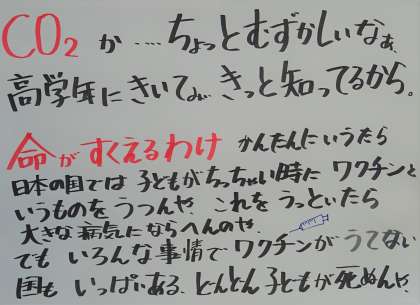 CO2 が‥‥ちょっとむずかしいなぁ、
高学年にきいてみぃ きっと知ってるから。
命がすくえるわけ かんたんにいうたら
日本の国では 子どもがちっちゃい時に ワクチンと
いうものを うつんや、これを うっといたら
大きな病気にならへんのや、
でも いろんな事情で ワクチンが うてない
国も いっぱいある、とんとん子どもが死ぬんや、